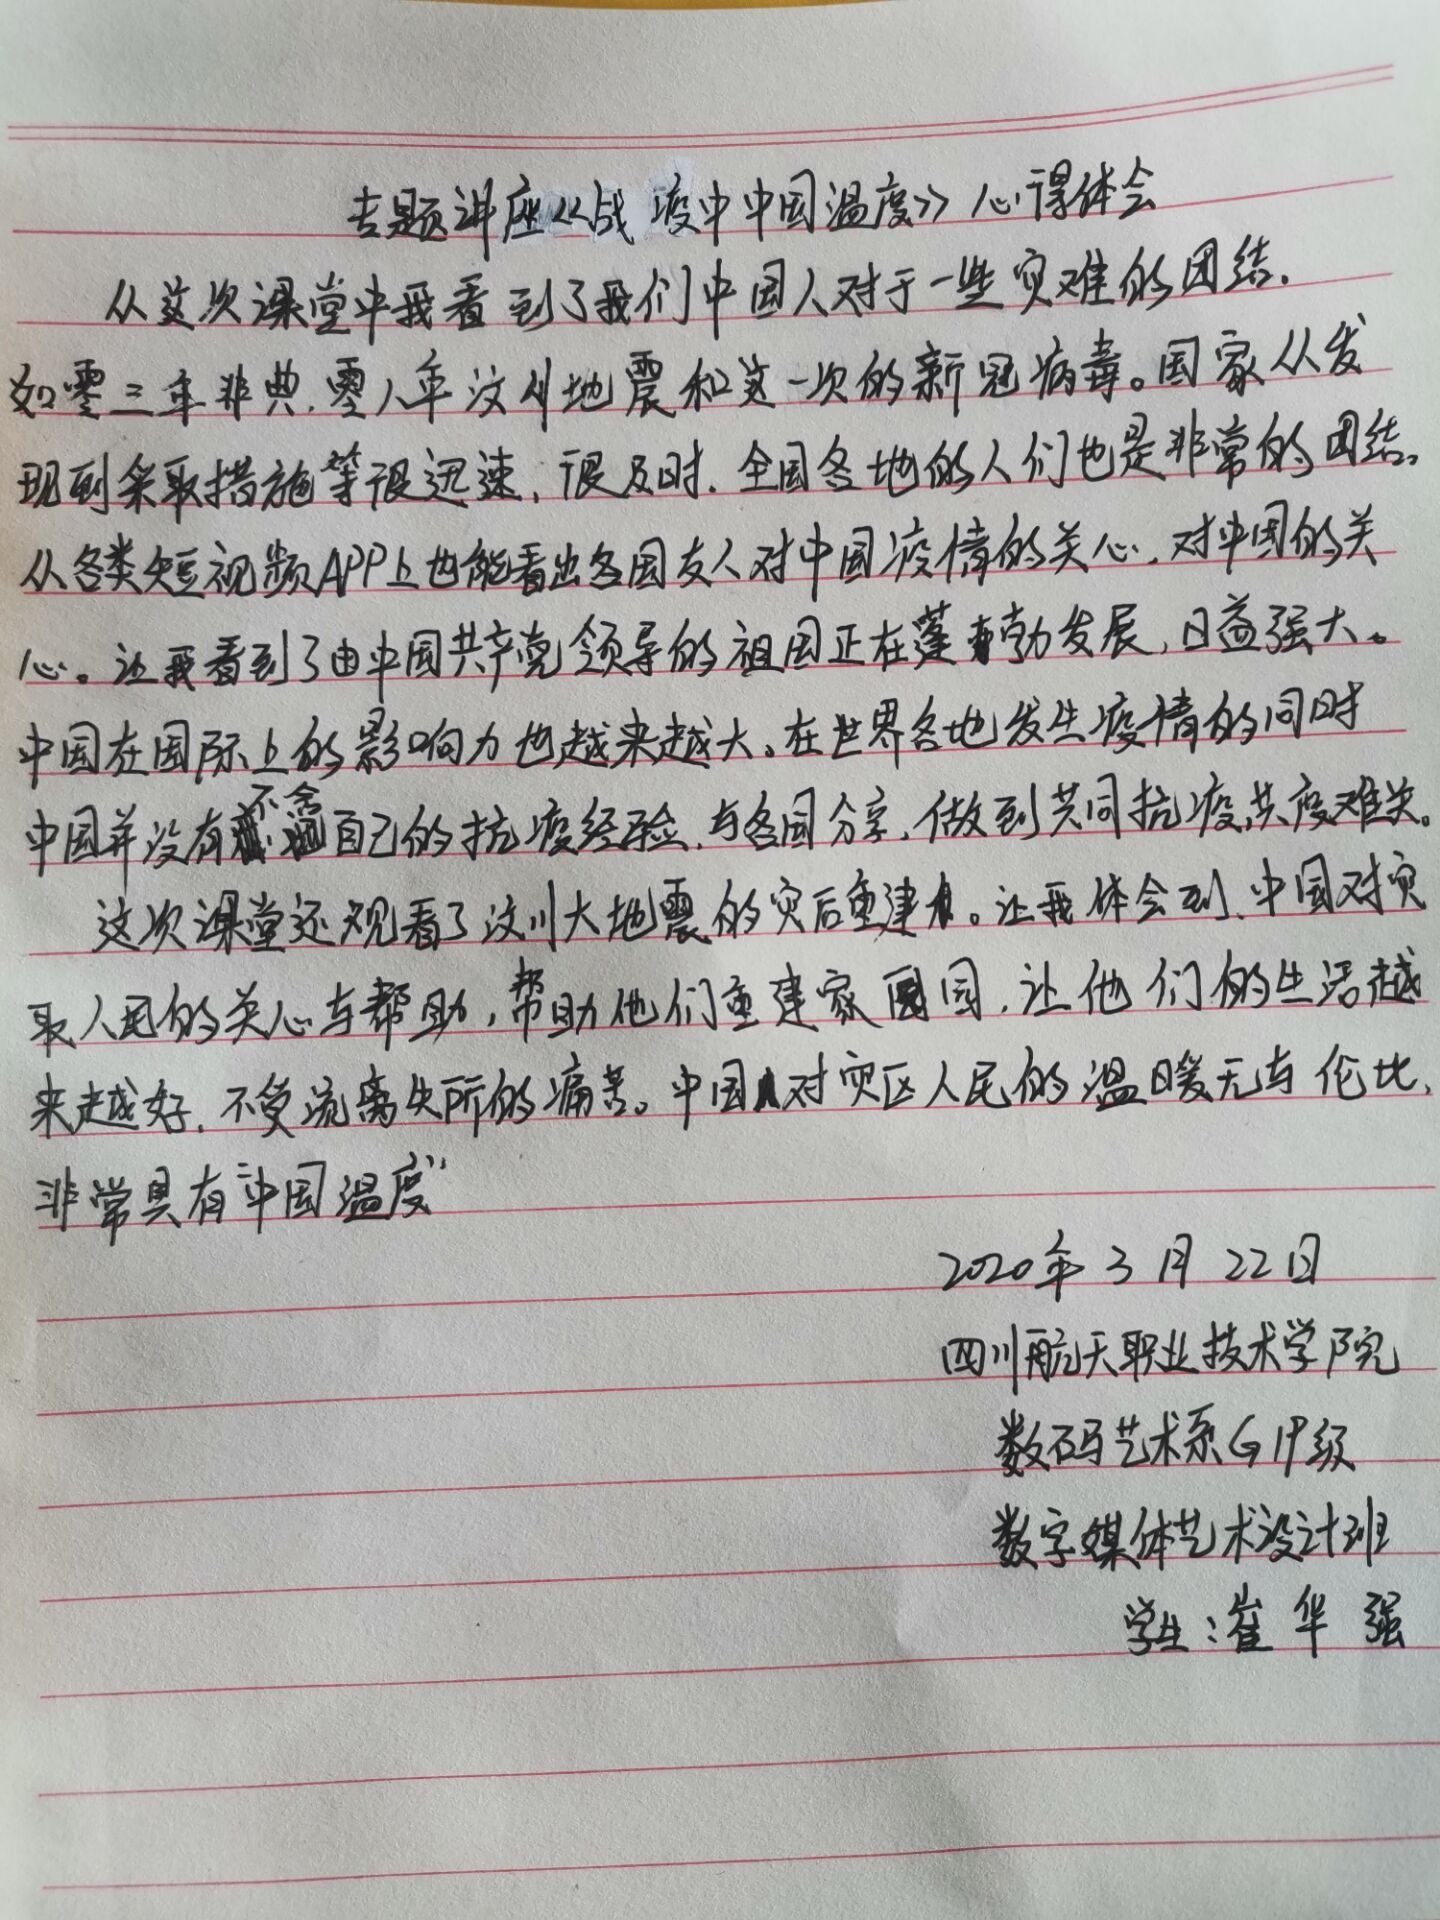 专题讲座《战疫中中国温度》心得体会
从这次课堂中我看到了我们中国人对于一些灾难的团结.
如零三年非典.零八年汶川地震和这一次的新冠病毒。国家从发
现到采取措施等很迅速,很及时.全国各地的人们也是非常的团结。
从各类短视频APP上也能看出各国友人对中国疫情的关心.对中国的关
心。让我看到了由中国共产党领导的祖国正在蓬勃发展,日益强大。
中国在国际上的影响力也越来越大。在世界各地发生疫情的同时
中国并没有自己的抗疫经验.与各国分享.做到共同抗疫,共度难关。
这次课堂还观看了汶川大地震的灾后重建。让我体会到.中国对灾
区人民的关心与帮助,帮助他们重建家园.让他们的生活越
来越好.不受流离失所的痛苦。中国对灾区人民的温暖无与伦比.
非常具有"中国温度"
2020年3月22日
四川航天职业技术学院
数码艺术系G19级
数字媒体艺术设计班
学生:崔华强